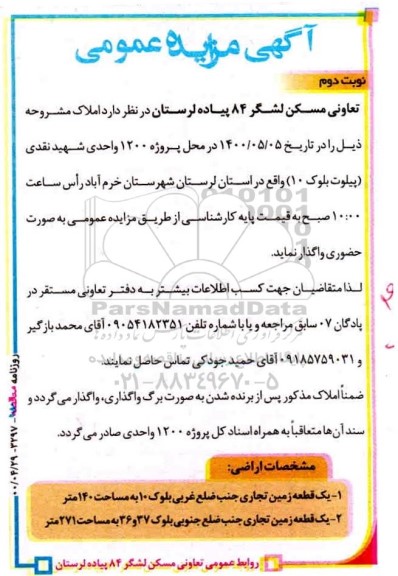 آگهی مزایده عمومی
نوبت دوم
تعاونی مسکن لشگر ۸۴ پیاده لرستان در نظر دارد املاک مشروحه
ذیل را در تاریخ ۱۴۰۰/۰۵/۰۵ در محل پروژه ۱۲۰۰ واحدی شهید نقدی
(پیلوت بلوک ۱۰) واقع در استان لرستان شهرستان خرم آباد رأس ساعت
۱۰:۰۰ صبح به قیمت پایه کارشناسی از طریق مزایده عمومی به صورت
حضوری واگذار نماید.
لذا متقاضیان جهت کسب اطلاعات بیشتر به دفتر تعاونی مستقر در
پادگان ۰۷ سابق مراجعه و یا با شماره تلفن ۰۹۰۵۴۱۸۲۳۵۱ آقای محمد بازگیر
و ۰۹۱۸۵۷۵۹۰۳۱ آقای حمید جودکی تماس حاصل نمایند.
ضمناً املاک مذکور پس از برنده شدن به صورت برگ واگذاری، واگذار می گردد و
سند آن ها متعاقباً به همراه اسناد کل پروژه ۱۲۰۰ واحدی صادر می گردد.
مشخصات اراضی:
۱- یک قطعه زمین تجاری جنب ضلع غربی بلوک ۱۰ به مساحت ۱۴۰ متر
۲- یک قطعه زمین تجاری جنب ضلع جنوبی بلوک ۳۷ و ۳۶ به مساحت ۲۷۱ متر
روابط عمومی تعاونی مسکن لشگر ۸۴ پیاده لرستان
ParsNamadData
۰۲۱-۸۸۳۴۹۶۷۰-۵
روزنامه ۳۲۹۷- ۰۰/۰۴/۲۹